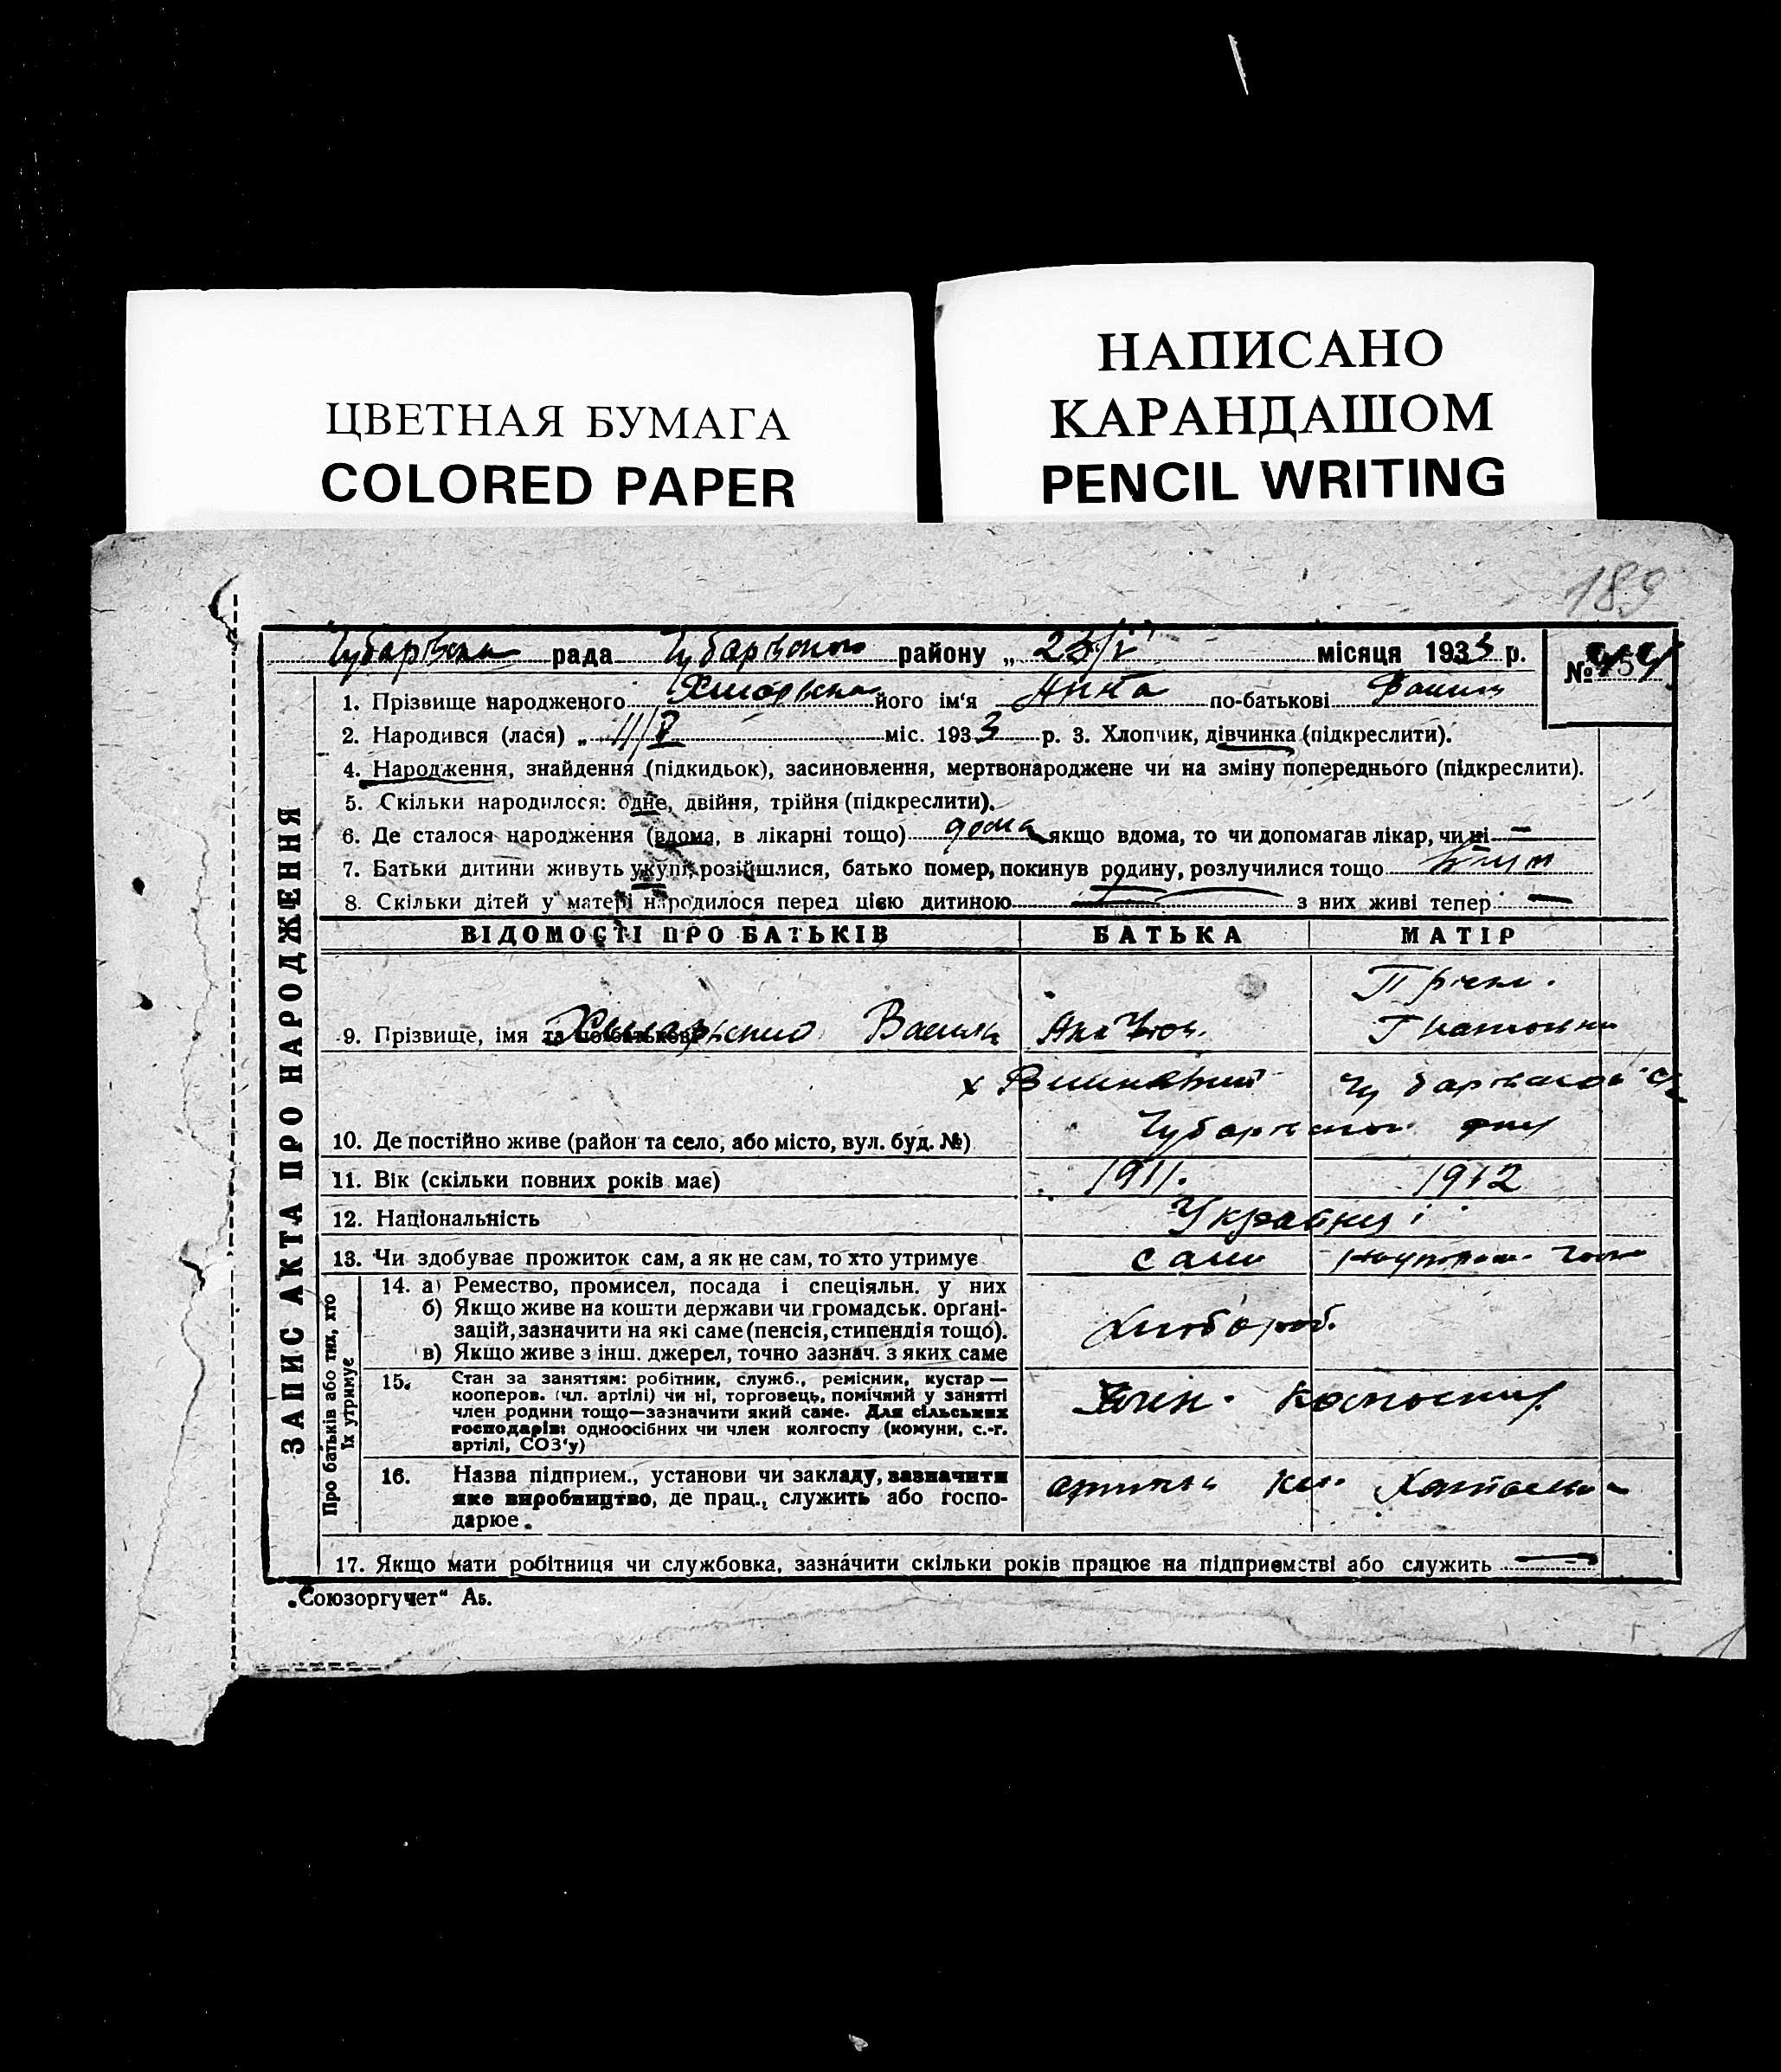 ЦВЕТНАЯ БУМАГА
COLORED PAPER
НАПИСАНО
КАРАНДАШОМ
PENCIL WRITING
189
рада району „ 23/V " місяця 1933 р. №
1. Прізвище народженого його ім'я Анна по-батькові
2. Народився (лася) „ 11/V міс. 1933 р. 3. Хлопчик, дівчинка (підкреслити).
4. Народження, знайдення (підкидьок), засиновлення, мертвонароджене чи на зміну попереднього (підкреслити).
5. Скільки народилося: одне, двійня, трійня (підкреслити).
6. Де сталося народження (вдома, в лікарні тощо) дома якщо вдома, то чи допомагав лікар, чи ні —
7. Батьки дитини живуть укупі, розійшлися, батько помер, покинув родину, розлучилися тощо
8. Скільки дітей у матері народилося перед цією дитиною — з них живі тепер —
ВІДОМОСТІ ПРО БАТЬКІВ БАТЬКА МАТІР
9. Прізвище, імя та по-батькові Василь
10. Де постійно живе (район та село, або місто, вул. буд. №)
11. Вік (скільки повних років має) 1911. 1912
12. Національність Українці
13. Чи здобуває прожиток сам, а як не сам, то хто утримує сами
14. а) Ремество, промисел, посада і спеціяльн. у них
б) Якщо живе на кошти держави чи громадськ. органі-
зацій, зазначити на які саме (пенсія, стипендія тощо).
в) Якщо живе з інш. джерел, точно зазнач. з яких саме
Хлібороб.
15. Стан за заняттям: робітник, служб., ремісник, кустар —
кооперов. (чл. артілі) чи ні, торговець, помічний у занятті
член родини тощо—зазначити який саме. Для сільських
господарів: одноосібних чи член колгоспу (комуни, с.-г.
артілі, СОЗ'у)
Член колгоспу
16. Назва підприєм., установи чи закладу, зазначити
яке виробництво, де прац., служить або госпо-
дарює.
17. Якщо мати робітниця чи службовка, зазначити скільки років працює на підприємстві або служить —
ЗАПИС АКТА ПРО НАРОДЖЕННЯ
Про батьків або тих, хто
їх утримує
„Союзоргучет" А5.